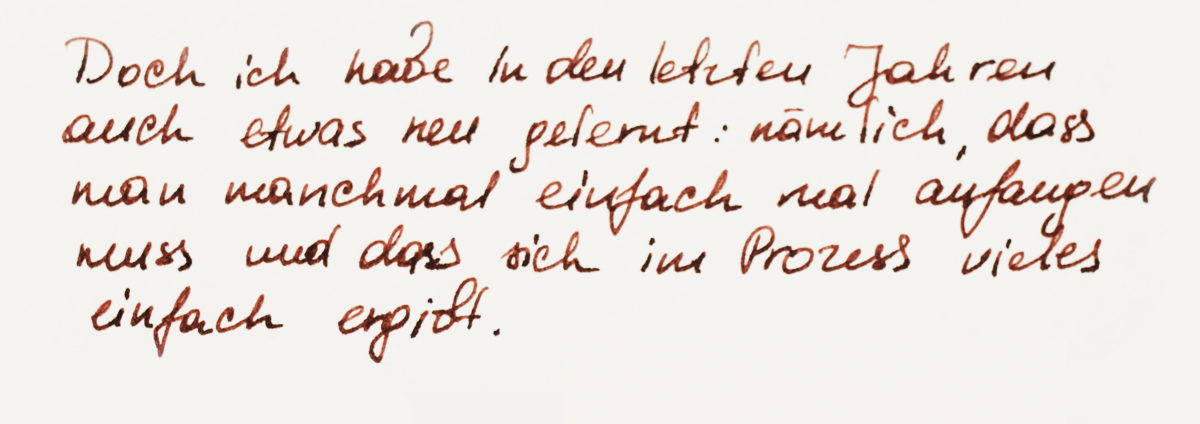 Doch ich habe in den letzten Jahren
auch etwas neu gelernt: nämlich, dass
man manchmal einfach mal anfangen
muss und dass sich im Prozess vieles
einfach ergibt.